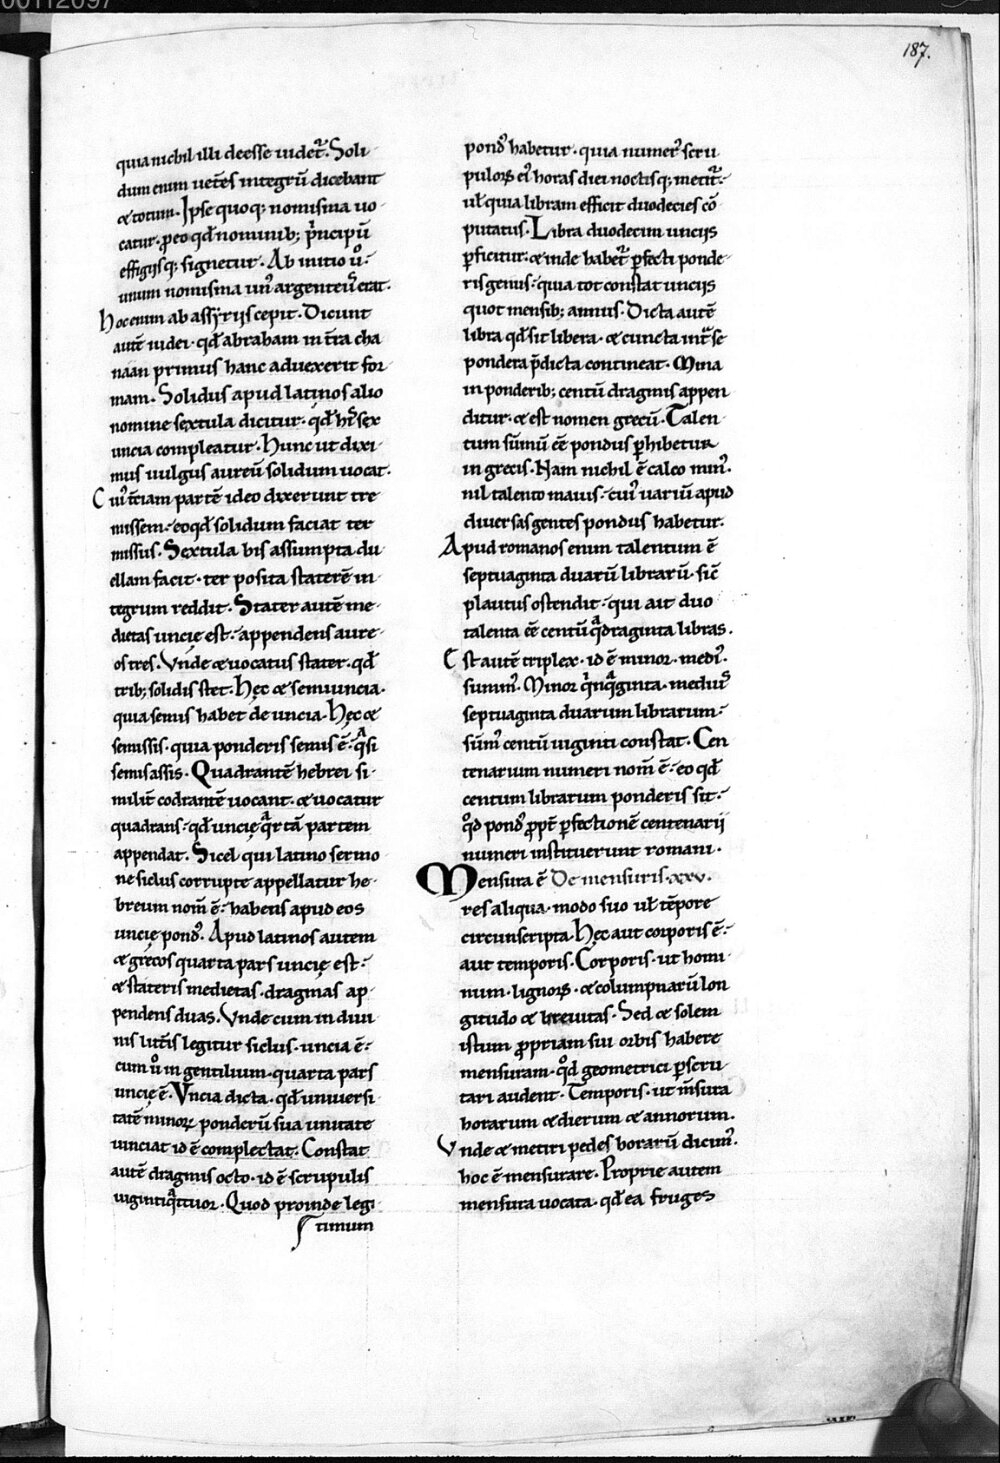 187.
quia nichil illi deesse uidet᷑. Soli
dum enim uet͛es integrū dicebant
⁊ totum. Ipse quoq; nomisma uo
catur. ꝓ eo qđ nominib; pͥncipū
effigiisq; signetur. Ab initio u̾.
unum nomisma un᷒ argenteus̾ erat.
hoc enim ab assyriis cepit. Dicunt
autē iudei. qđ abraham in t͛ra cha
naan primus hanc aduexerit for
mam. Solidus apud latinos alio
nomine sextula dicitur. qđ his̾ sex
uncia compleatur. Hunc ut dixi
mus uulgus aureū solidum uocat.
Cui᷒ t͛ciam partē ideo dixerunt tre
missem. eo qđ solidum faciat ter
missus. Sextula bis assumpta du
ellam facit. ter posita staterē in
tegrum reddit. Stater autē me
dietas uncię est. appendens aure
os tres. Vnde ⁊ uocatus stater. qđ
trib; solidis stet. Hęc ⁊ semiuncia.
quia semis habet de uncia. Hęc ⁊
semissis. quia ponderis semis ē. qͣsi
semis assis. Quadrantē hebrei si
milit͛ codrantē uocant. ⁊ uocatur
quadrans. qđ uncię qͣrtā partem
appendat. Sicel qui latino sermo
ne siclus corrupte appellatur he
breum nom̄ ē. habens apud eos
uncię pond᷒. Apud latinos autem
⁊ grecos quarta pars uncię est.
⁊ stateris medietas. dragmas ap
pendens duas. Vnde cum in diui
nis litt͛is legitur siclus. uncia ē.
cum u̾ in gentilium. quarta pars
uncię ē. Vncia dicta. qđ uniuersi
tatē minorꝝ ponderū sua unitate
uinciat id ē complectat᷑. Constat
autē dragmis octo. id ē scrupulis
uigintiqͣttuor. Quod proinde legi
timum
pond᷒ habetur. quia numer᷒ scru
pulorꝝ ei᷒ horas diei noctisq; metit᷑.
uł quia libram efficit duodecies cō
putatus. Libra duodecim unciis
ꝑficitur. ⁊ inde habet᷑ ꝑfecti ponde
ris genus. quia tot constat unciis
quot mensib; annus. Dicta autē
libra qđ sit libera. ⁊ cuncta int͛ se
pondera p̄dicta contineat. Mina
in ponderib; centū dragmis appen
ditur. ⁊ est nomen grecū. Talen
tum sūmū eē pondus ꝑhibetur
in grecis. Nam nichil ē calco min᷒.
nil talento maius. cui᷒ uariū apud
diuersas gentes pondus habetur.
Apud romanos enim talentum ē
septuaginta duarū librarū. sic̄
plautus ostendit. qui ait duo
talenta eē centū qͣdraginta libras.
Est autē triplex. id ē minor. medi᷒.
summ᷒. Minor qͥnqͣginta. medius̾
septuaginta duarum librarum.
sūm᷒ centū uiginti constat. Cen
tenarium numeri nom̄ ē. eo qđ
centum librarum ponderis sit.
qͦd pond᷒ ꝓpt͛ ꝑfectionē centenarii
numeri instituerunt romani.
Mensura ē De mensuris. xxv.
res aliqua. modo suo uł tēpore
circunscripta. Hęc aut corporis ē.
aut temporis. Corporis. ut homi
num. lignorꝝ. ⁊ columpnarū lon
gitudo ⁊ breuitas. Sed ⁊ solem
istum ꝓpriam sui orbis habere
mensuram. qͦd geometrici ꝑscru
tari audent. Temporis. ut m̄sura
horarum ⁊ dierum ⁊ annorum.
Vnde ⁊ metiri pedes horarū dicim᷒.
hoc ē mensurare. Proprie autem
mensura uocata. qđ ea fruges